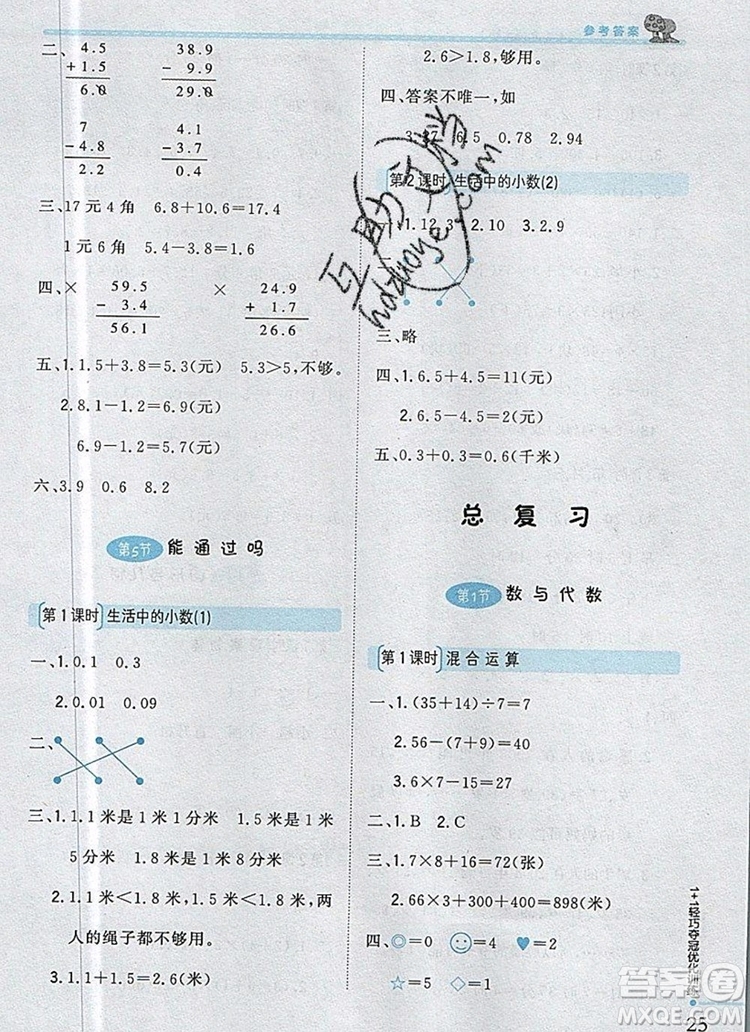 参考答案
二、 4.5   38.9
+1.5   - 9.9
6.0   29.0
7   4.1
-4.8   -3.7
2.2   0.4
三、17元4角 6.8+10.6=17.4
1元6角 5.4-3.8=1.6
四、× 59.5   × 24.9
- 3.4   + 1.7
56.1   26.6
五、1.1.5+3.8=5.3(元) 5.3>5,不够。
2.8.1-1.2=6.9(元)
6.9-1.2=5.7(元)
六、3.9 0.6 8.2
第5节 能通过吗
第1课时 生活中的小数(1)
一、1.0.1 0.3
2.0.01 0.09
二、
三、1.1.1米是1米1分米 1.5米是1米
5分米 1.8米是1米8分米
2.1.1米<1.5米<1.8米,两
人的绳子都不够用。
3.1.1+1.5=2.6(米)
2.6>1.8,够用。
四、答案不唯一,如
3.87 6.5 0.78 2.94
第2课时 生活中的小数(2)
一、1.12,3 2.10 3.2.9
三、略
四、1.6.5+4.5=11(元)
2.6.5-4.5=2(元)
五、0.3+0.3=0.6(千米)
总复习
第1节 数与代数
第1课时 混合运算
一、1.(35+14)÷7=7
2.56-(7+9)=40
3.6×7-15=27
二、1.B 2.C
三、1.7×8+16=72(张)
2.66×3+300+400=898(米)
四、◎=0 =4 ♥=2
☆=5 ◇=1
1+1轻巧夺冠优化训练
25
互助文学
hdzuoye.com
答案圈
MXQE.COM